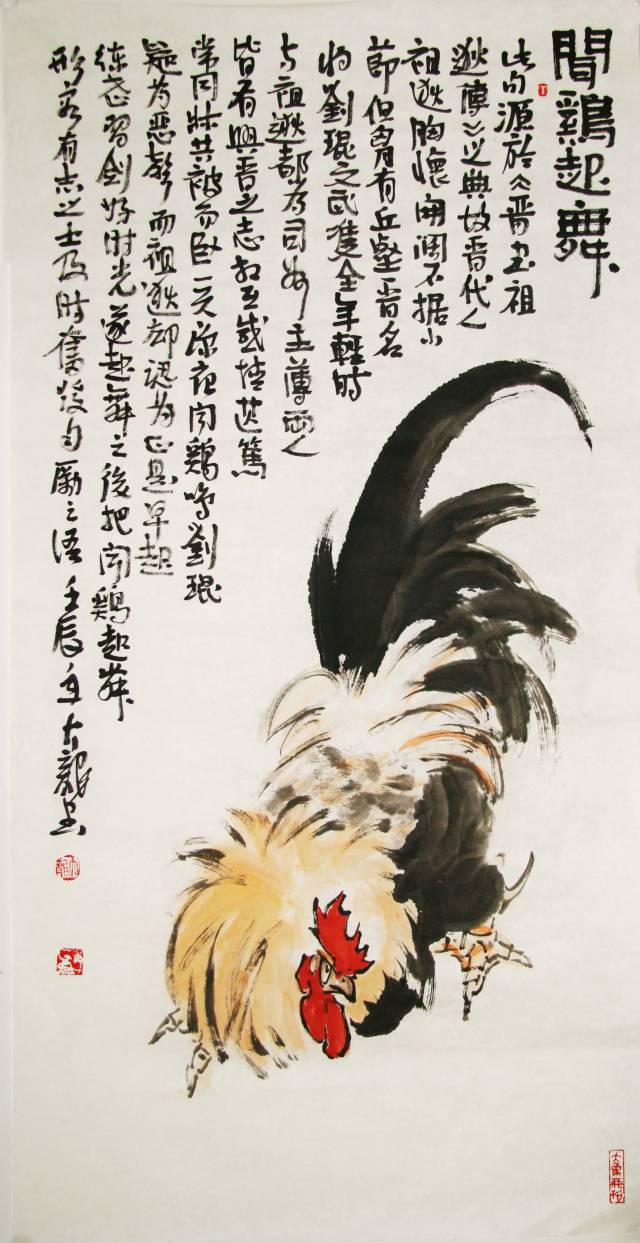 聞鷄起舞
此句源於《晋書祖
逖傳》之典故晋代人
祖逖胸懷開闊不据小
節但胸有丘壑晋名
將劉琨文武隻全年輕時
与祖逖都为司州主薄両人
皆有興晋之志相互感情甚篤
常同牀共被而卧一天深夜闻鷄鸣劉琨
疑为恶聲而祖逖却認为正是早起
练武習剑好时光遂起舞之後把闻鷄起舞
形容有志之士及时奮發自励之语壬辰年大龍畫
大象無形